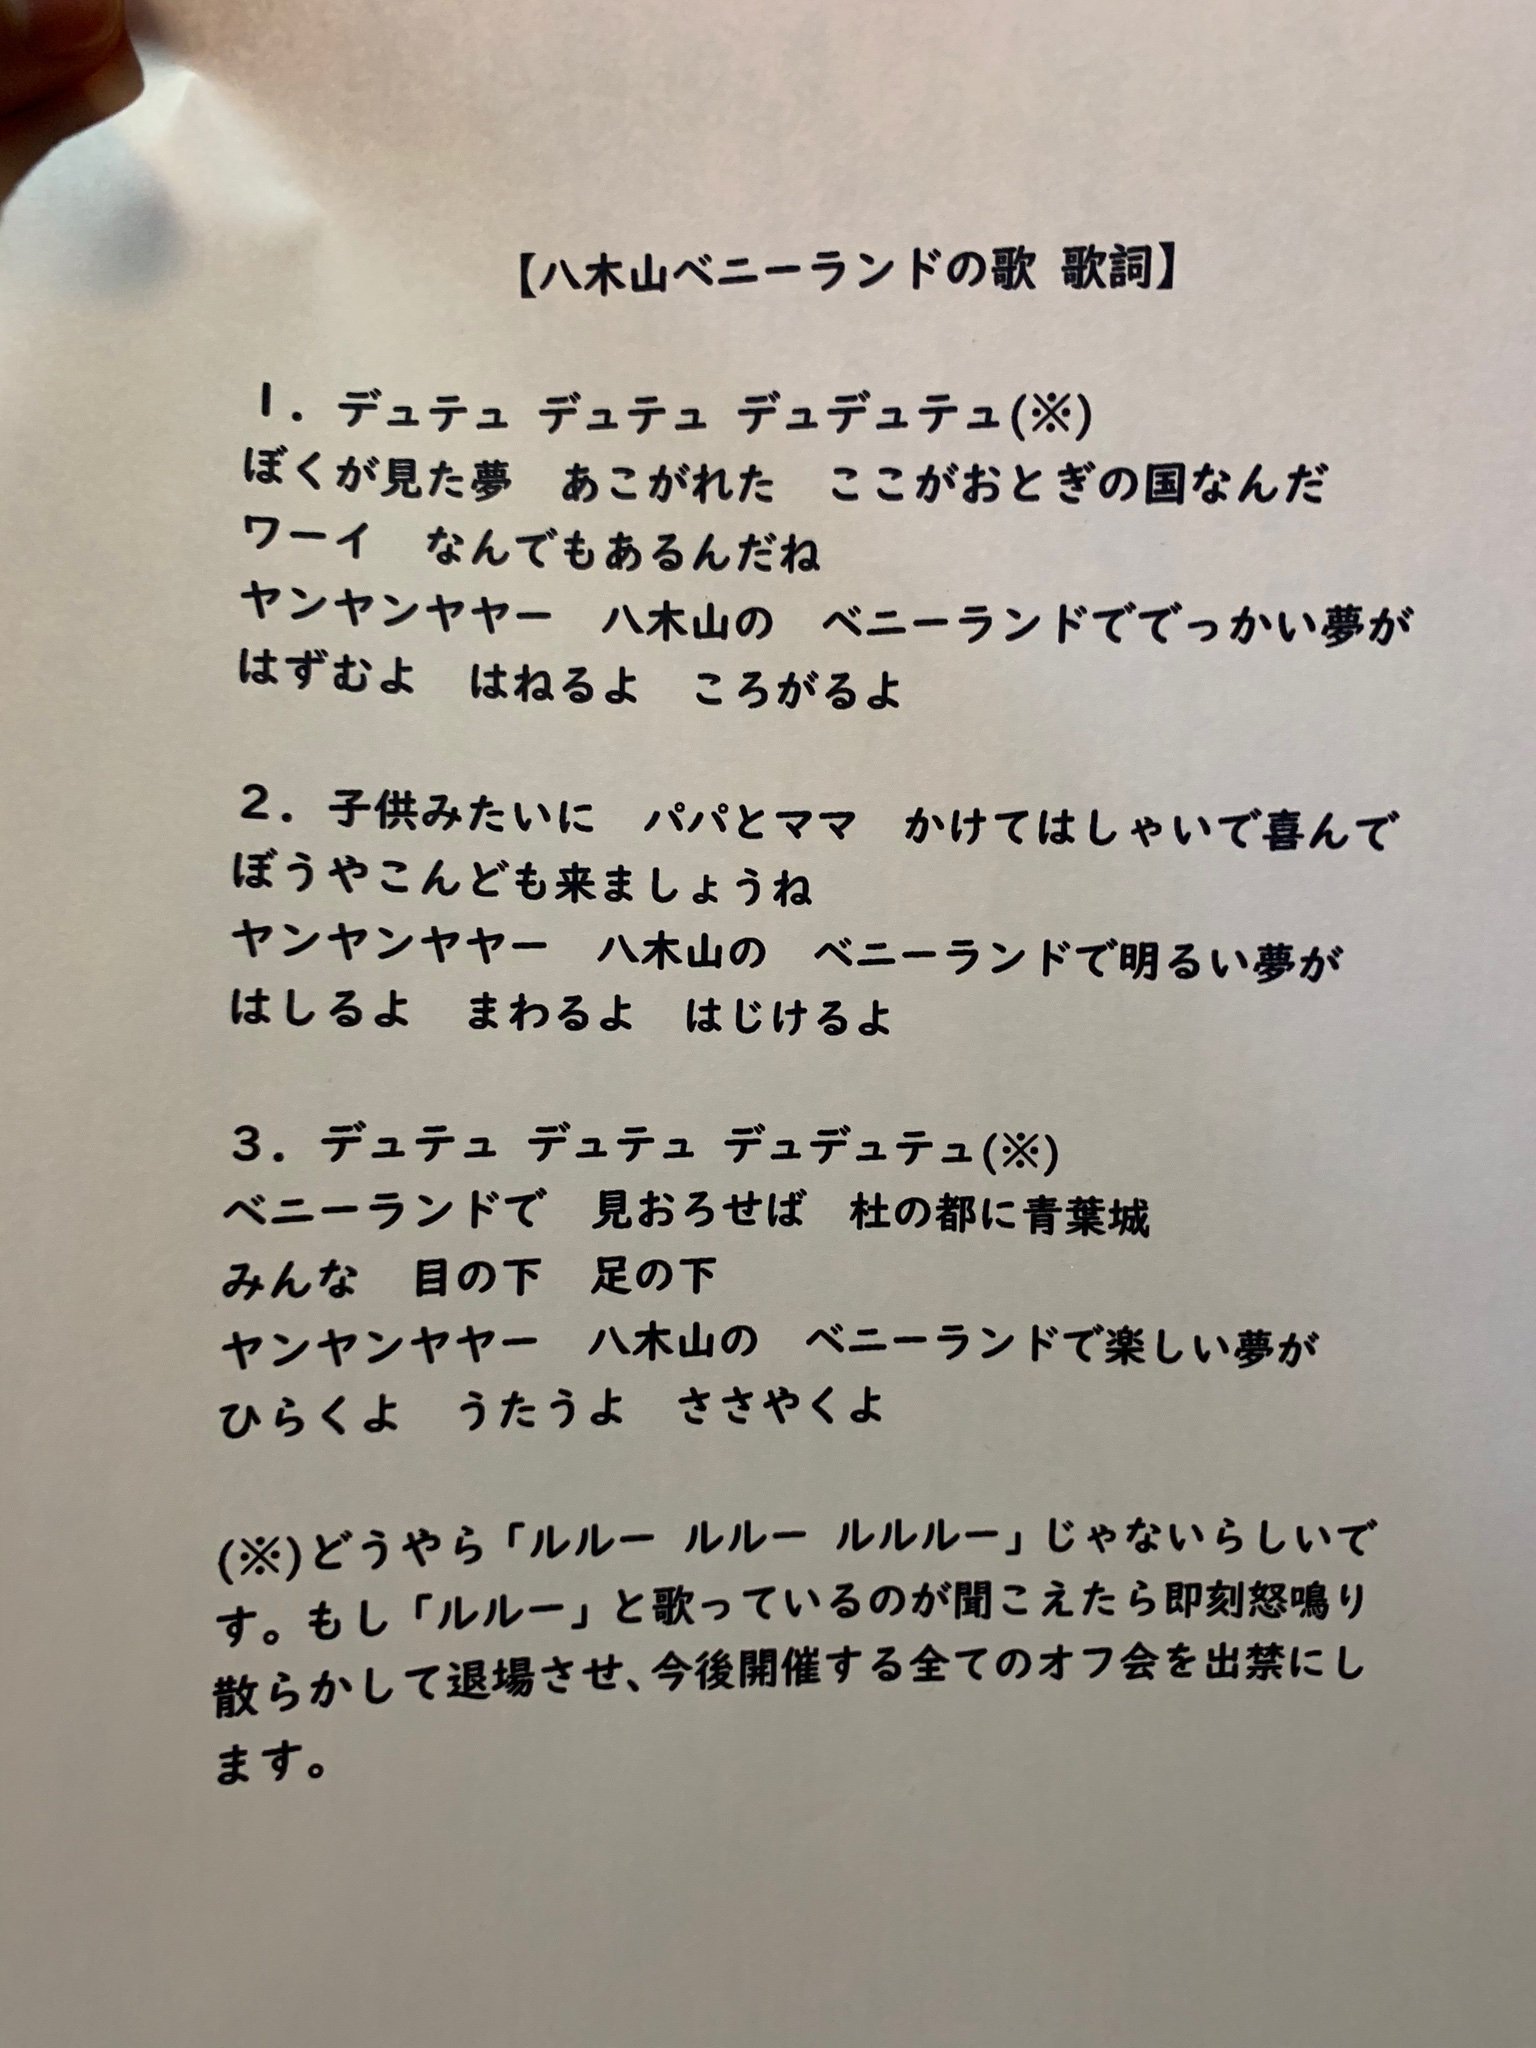 【八木山ベニーランドの歌 歌詞】
1．デュテュ デュテュ デュデュテュ(※)
ぼくが見た夢　あこがれた　ここがおとぎの国なんだ
ワーイ　なんでもあるんだね
ヤンヤンヤヤー　八木山の　ベニーランドででっかい夢が
はずむよ　はねるよ　ころがるよ
2．子供みたいに　パパとママ　かけてはしゃいで喜んで
ぼうやこんども来ましょうね
ヤンヤンヤヤー　八木山の　ベニーランドで明るい夢が
はしるよ　まわるよ　はじけるよ
3．デュテュ デュテュ デュデュテュ(※)
ベニーランドで　見おろせば　杜の都に青葉城
みんな　目の下　足の下
ヤンヤンヤヤー　八木山の　ベニーランドで楽しい夢が
ひらくよ　うたうよ　ささやくよ
(※)どうやら「ルルー ルルー ルルルー」じゃないらしいで
す。もし「ルルー」と歌っているのが聞こえたら即刻怒鳴り
散らかして退場させ、今後開催する全てのオフ会を出禁にし
ます。